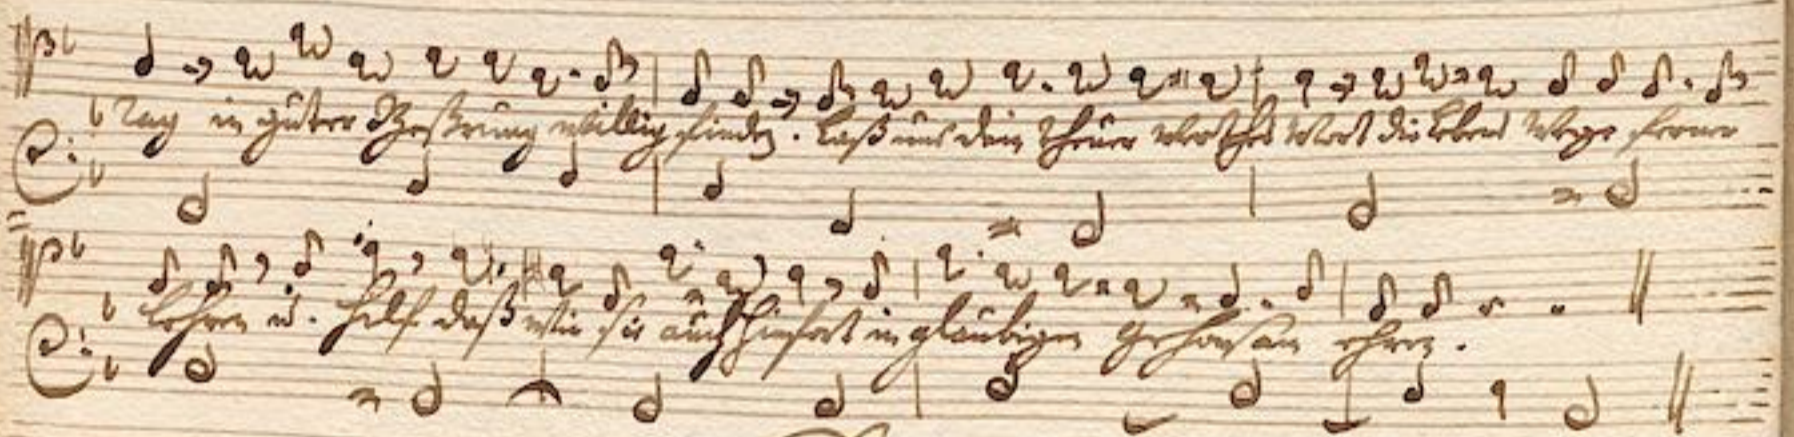 Tag in guter Beßrung willig finden. Laß uns dein theuer werthes Wort die Lebens Wege ferner
lehren u. hilf daß wir sie auch hinfort in gläubigen Gehorsam ehren.